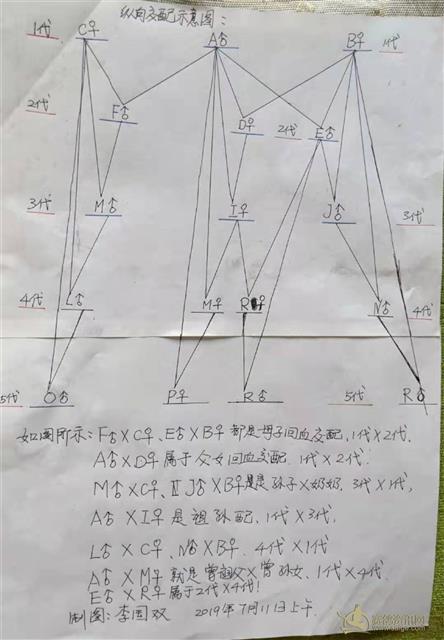 纵向交配示意图：
1代 C♀ A♂ B♀ 1代
2代 F♂ D♀ 2代 E♂
3代 M♂ I♀ J♂ 3代
4代 L♂ M♀ R♀ N♂ 4代
5代 O♂ P♀ R♂ 5代 R♂
如图所示：F♂×C♀、E♂×B♀都是母子回血交配、1代×2代.
A♂×D♀属于父女回血交配 1代×2代.
M♂×C♀、J♂×B♀是孙子×奶奶、3代×1代,
A♂×I♀是祖孙配、1代×3代,
L♂×C♀、N♂×B♀、4代×1代
A♂×M♀就是曾祖父×曾孙女、1代×4代
E♂×R♀属于2代×4代!
制图：李国双 2019年7月11日上午.